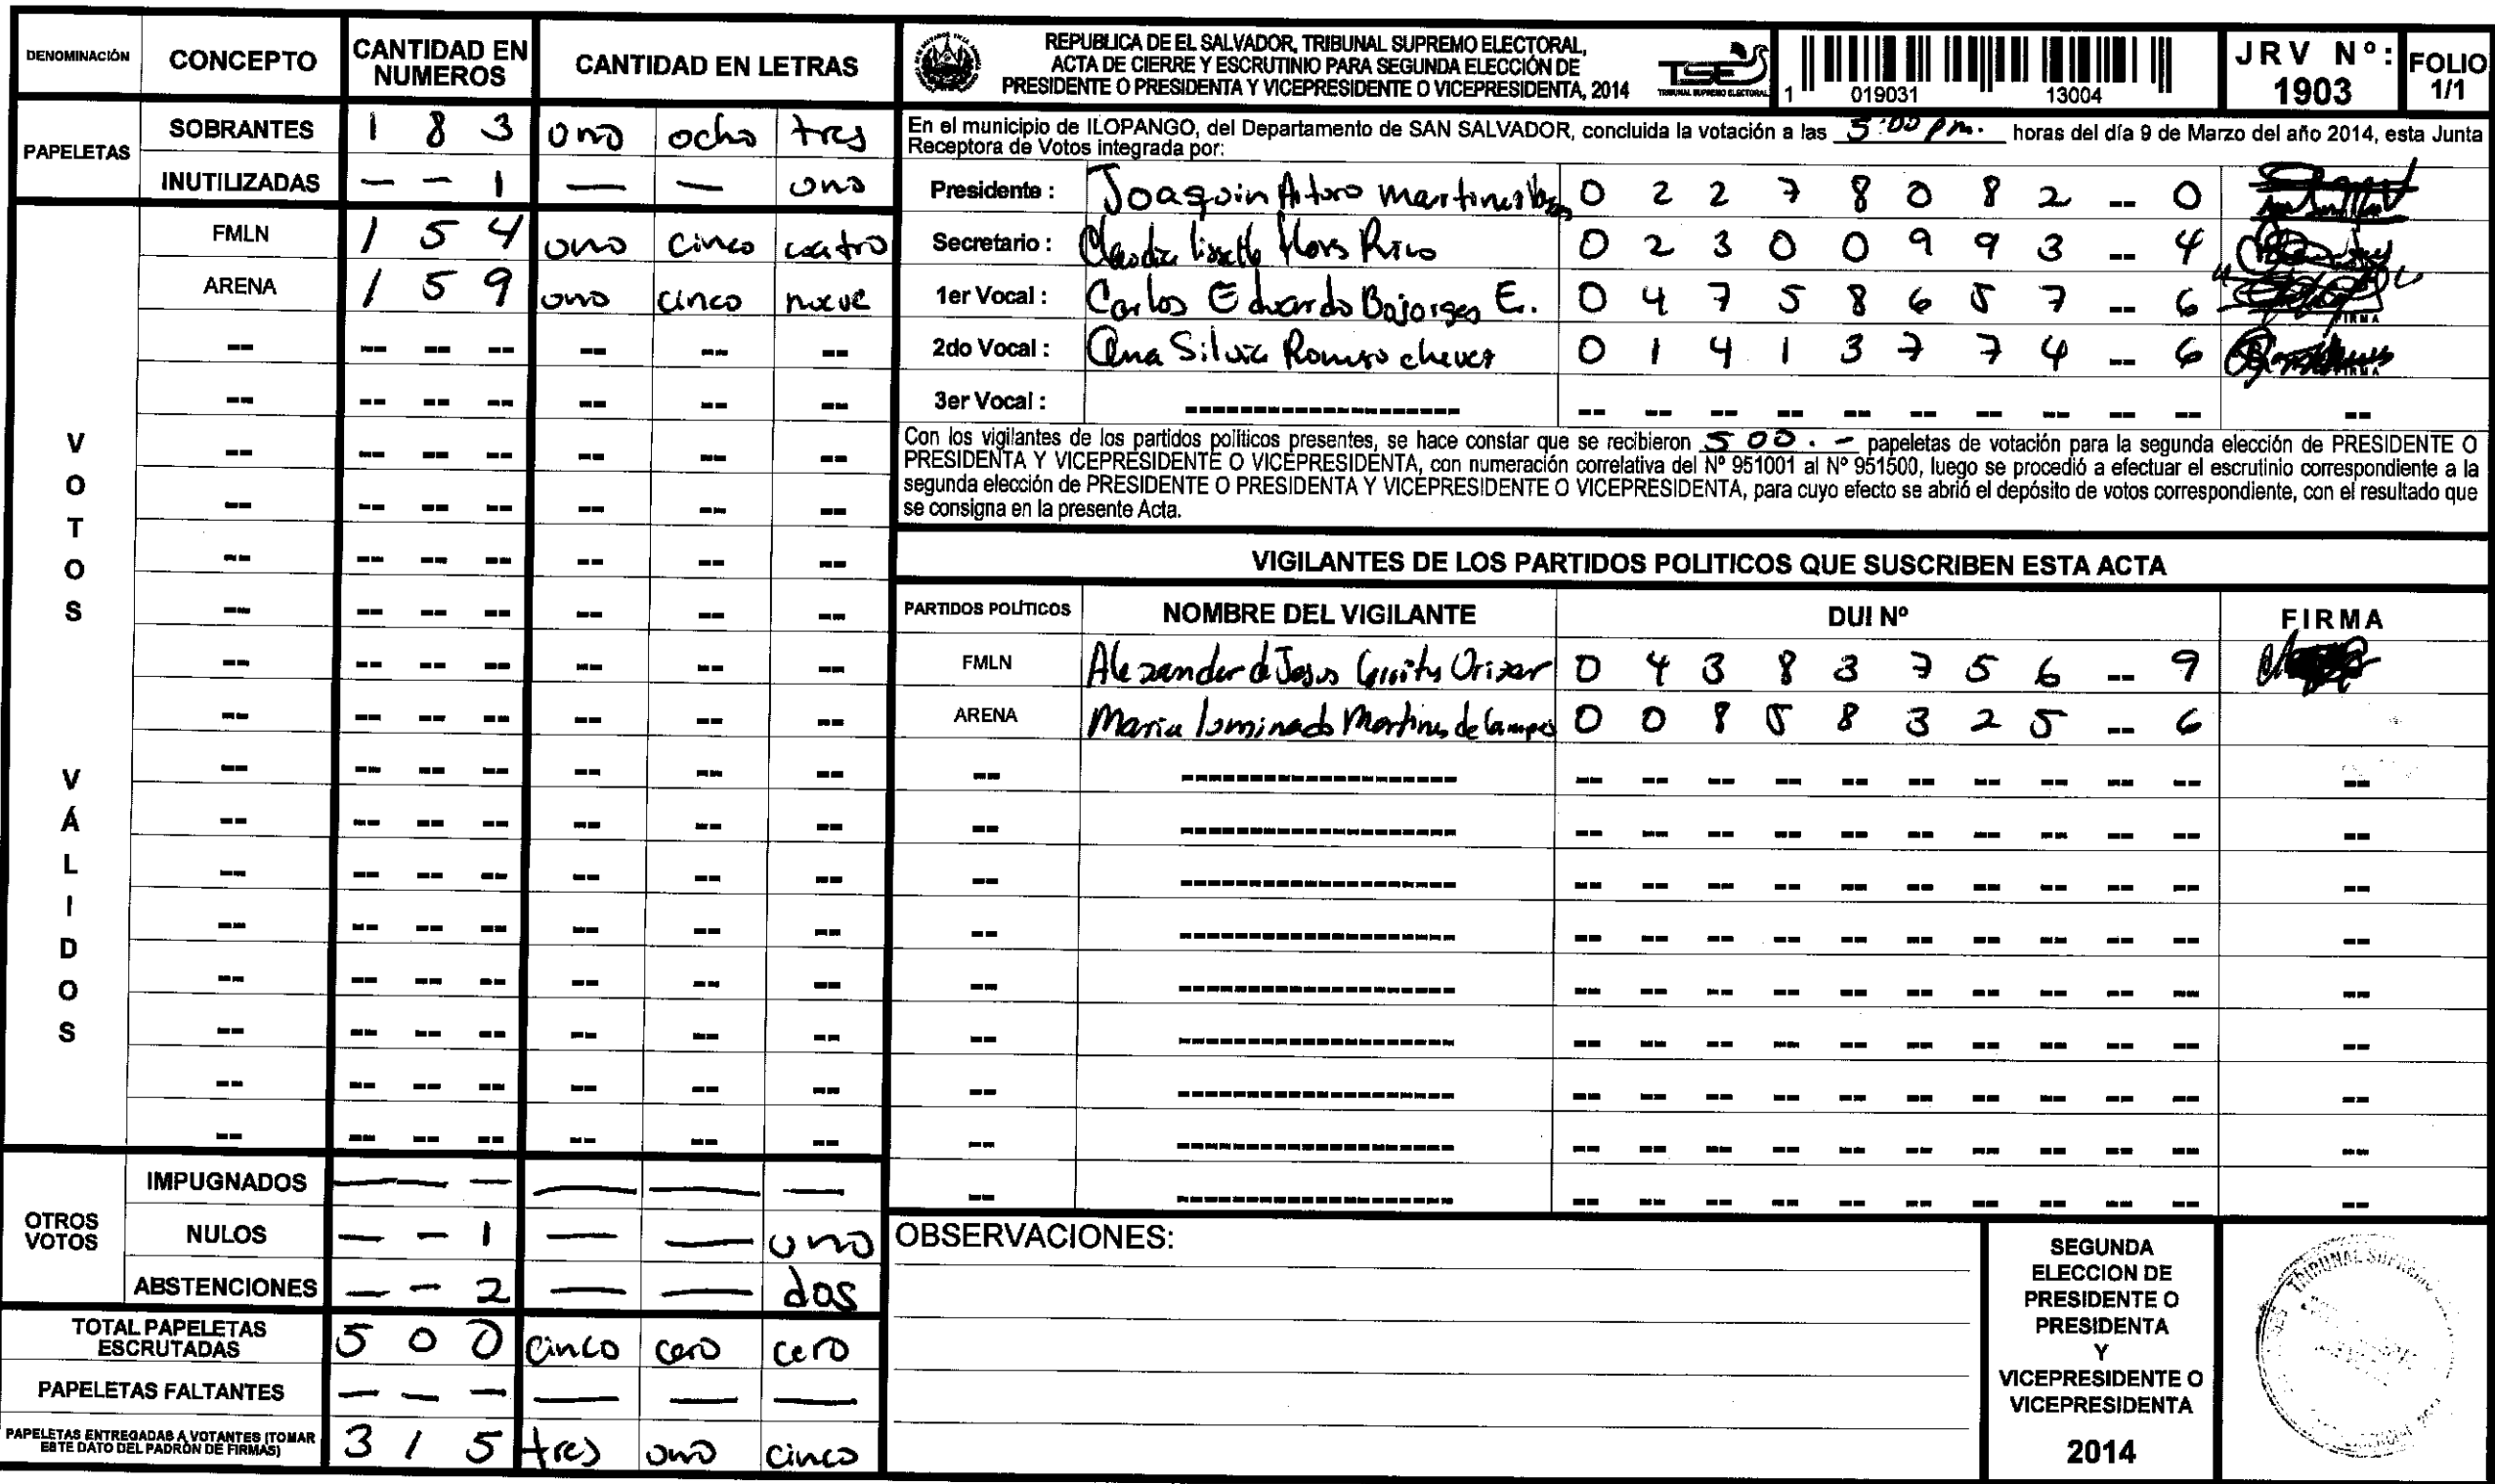 DENOMINACIÓN CONCEPTO CANTIDAD EN NUMEROS CANTIDAD EN LETRAS
PAPELETAS
SOBRANTES 1 8 3 uno ocho tres
INUTILIZADAS — — 1 — — uno
VOTOS VÁLIDOS
FMLN 1 5 4 uno cinco cuatro
ARENA 1 5 9 uno cinco nueve
OTROS VOTOS
IMPUGNADOS — — — — — —
NULOS — — 1 — — uno
ABSTENCIONES — — 2 — — dos
TOTAL PAPELETAS ESCRUTADAS 5 0 0 cinco cero cero
PAPELETAS FALTANTES — — — — — —
PAPELETAS ENTREGADAS A VOTANTES (TOMAR ESTE DATO DEL PADRÓN DE FIRMAS) 3 1 5 tres uno cinco
REPUBLICA DE EL SALVADOR, TRIBUNAL SUPREMO ELECTORAL,
ACTA DE CIERRE Y ESCRUTINIO PARA SEGUNDA ELECCIÓN DE
PRESIDENTE O PRESIDENTA Y VICEPRESIDENTE O VICEPRESIDENTA, 2014
TSE
TRIBUNAL SUPREMO ELECTORAL
1 019031 13004
JRV Nº: 1903
FOLIO 1/1
En el municipio de ILOPANGO, del Departamento de SAN SALVADOR, concluida la votación a las 5:00 pm. horas del día 9 de Marzo del año 2014, esta Junta
Receptora de Votos integrada por:
Presidente : Joaquin Arturo Martinez 0 2 2 7 8 0 8 2 -- 0
Secretario : Claudia Lissette Flores Rivas 0 2 3 0 0 9 9 3 -- 4
1er Vocal : Carlos Eduardo Bojorges E. 0 4 7 5 8 6 5 7 -- 6 FIRMA
2do Vocal : Ana Silvia Romero chevez 0 1 4 1 3 7 7 4 -- 6 FIRMA
3er Vocal :
Con los vigilantes de los partidos políticos presentes, se hace constar que se recibieron 500.- papeletas de votación para la segunda elección de PRESIDENTE O
PRESIDENTA Y VICEPRESIDENTE O VICEPRESIDENTA, con numeración correlativa del Nº 951001 al Nº 951500, luego se procedió a efectuar el escrutinio correspondiente a la
segunda elección de PRESIDENTE O PRESIDENTA Y VICEPRESIDENTE O VICEPRESIDENTA, para cuyo efecto se abrió el depósito de votos correspondiente, con el resultado que
se consigna en la presente Acta.
VIGILANTES DE LOS PARTIDOS POLITICOS QUE SUSCRIBEN ESTA ACTA
PARTIDOS POLÍTICOS NOMBRE DEL VIGILANTE DUI Nº FIRMA
FMLN Alexander d Jesus 0 4 3 8 3 7 5 6 -- 9
ARENA Maria Martinez de Campos 0 0 8 5 8 3 2 5 -- 6
OBSERVACIONES:
SEGUNDA
ELECCION DE
PRESIDENTE O
PRESIDENTA
Y
VICEPRESIDENTE O
VICEPRESIDENTA
2014
TRIBUNAL SUPREMO